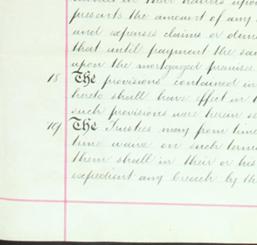 presents the amount of any
and expenses claims or dem
that until payment the sa
upon the mortgaged premises
18 The provisions contained in
hereto shall have effect in t
such provisions were herein s
19 The Trustees may from time
time waive on such terms
them shall in their or his
expedient any breach by th